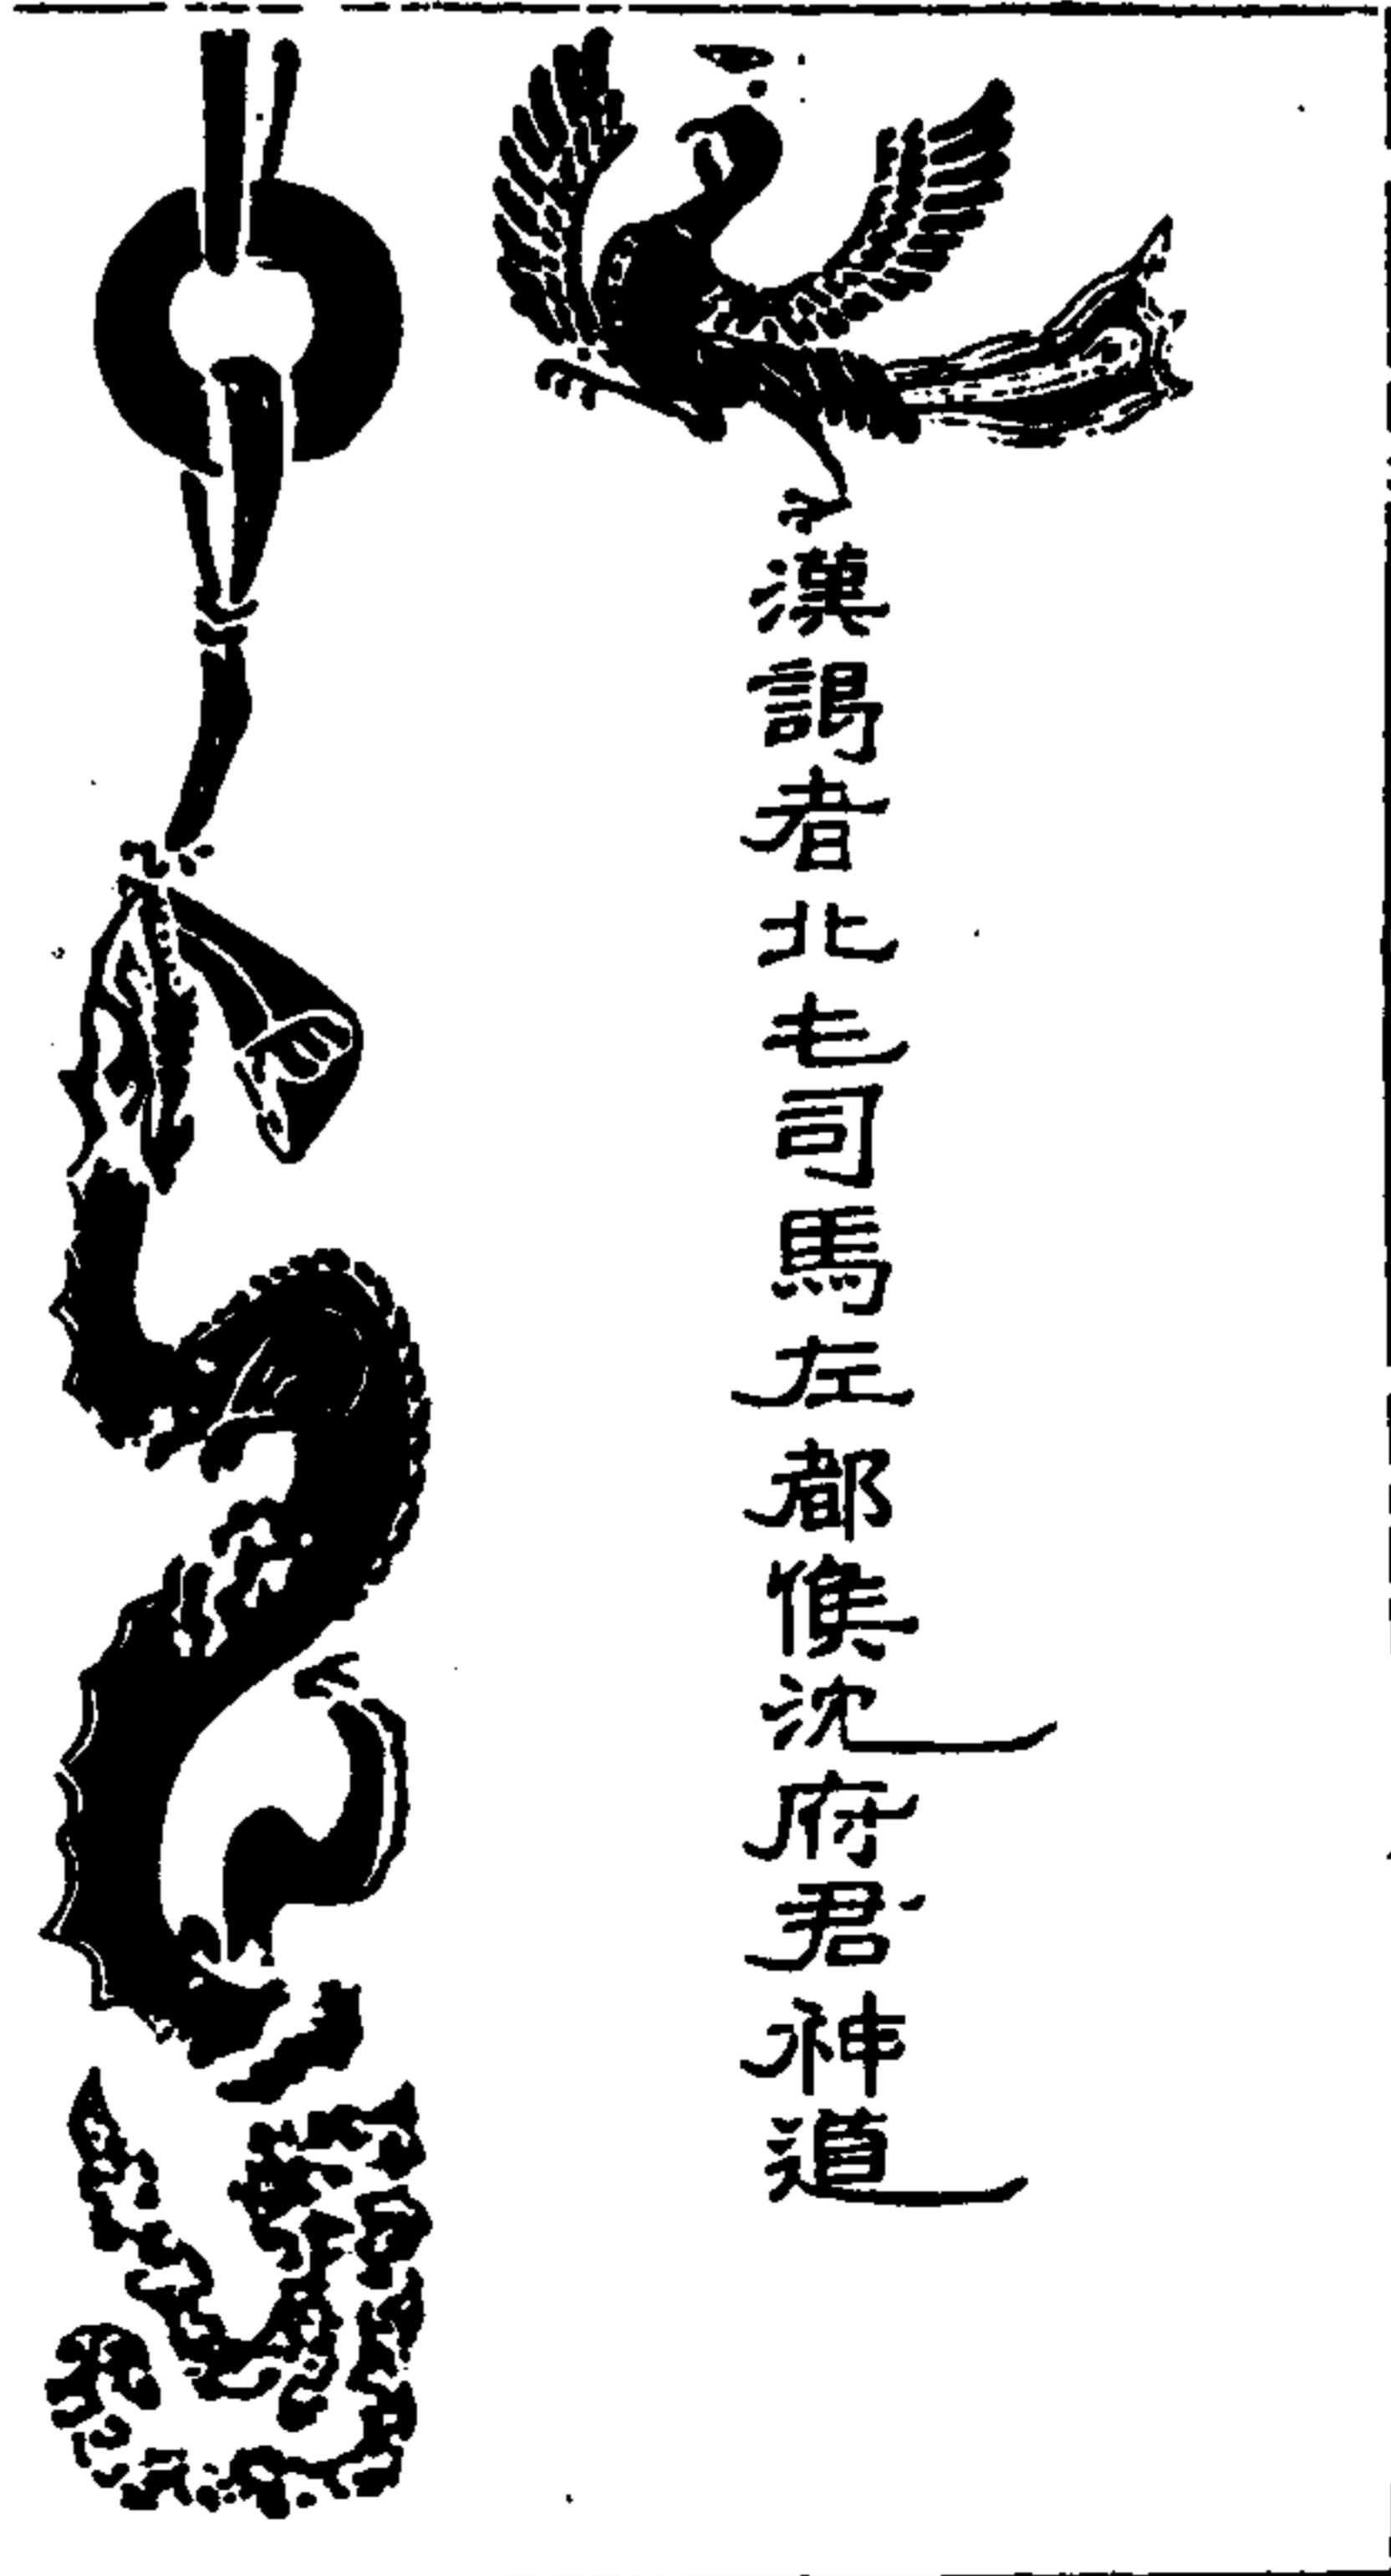 漢謁者北屯司馬左都候沈府君神道